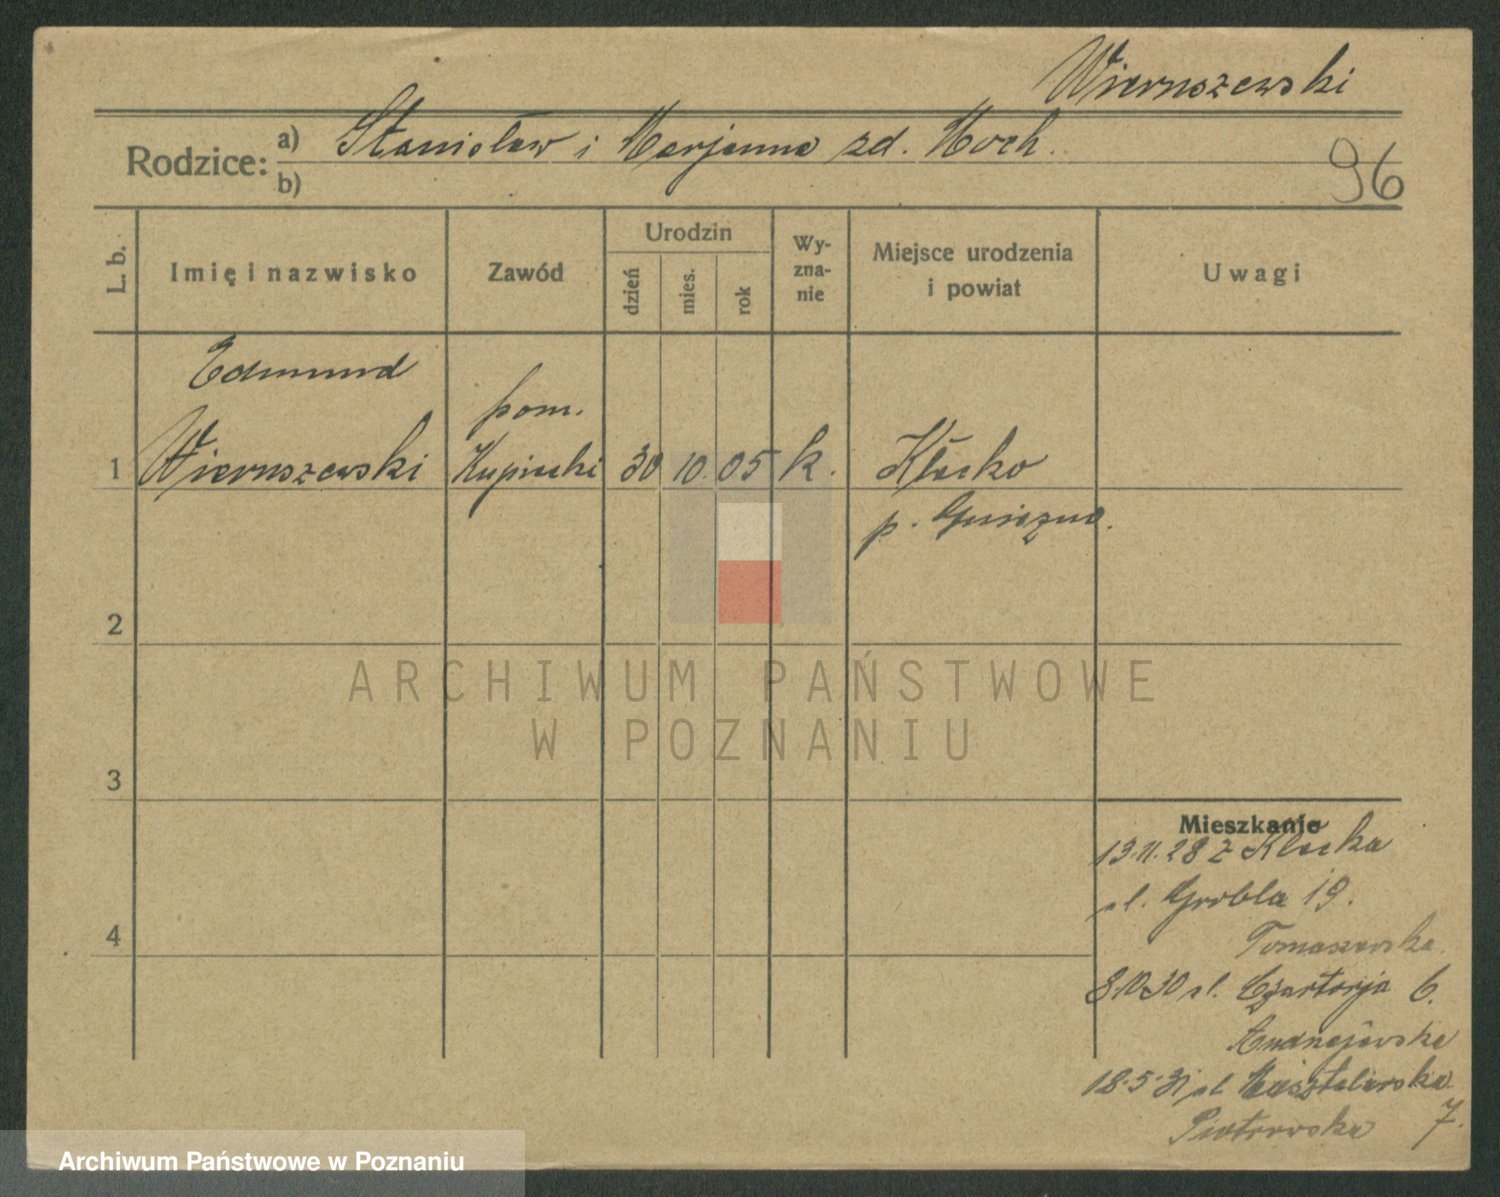 Wiernszewski
Rodzice: a) Stanisław i Marjanna zd. Hoch.
b)
96
L. b.
Imię i nazwisko
Zawód
Urodzin
dzień
mies.
rok
Wy-
zna-
nie
Miejsce urodzenia
i powiat
Uwagi
Edmund
pom.
1 Wiernszewski Kupiecki 30 10. 05 k. Kłecko
p. Gniezno.
2
ARCHIWUM PAŃSTWOWE
W POZNANIU
3
Mieszkanie
13.11.28 z Kłecka
ul. Grobla 19.
4
Tomaszewska
8.10.30 ul. Czartorja 6.
Andrzejewska
18.5.31 ul Masztalarska
Piotrowska 7.
Archiwum Państwowe w Poznaniu